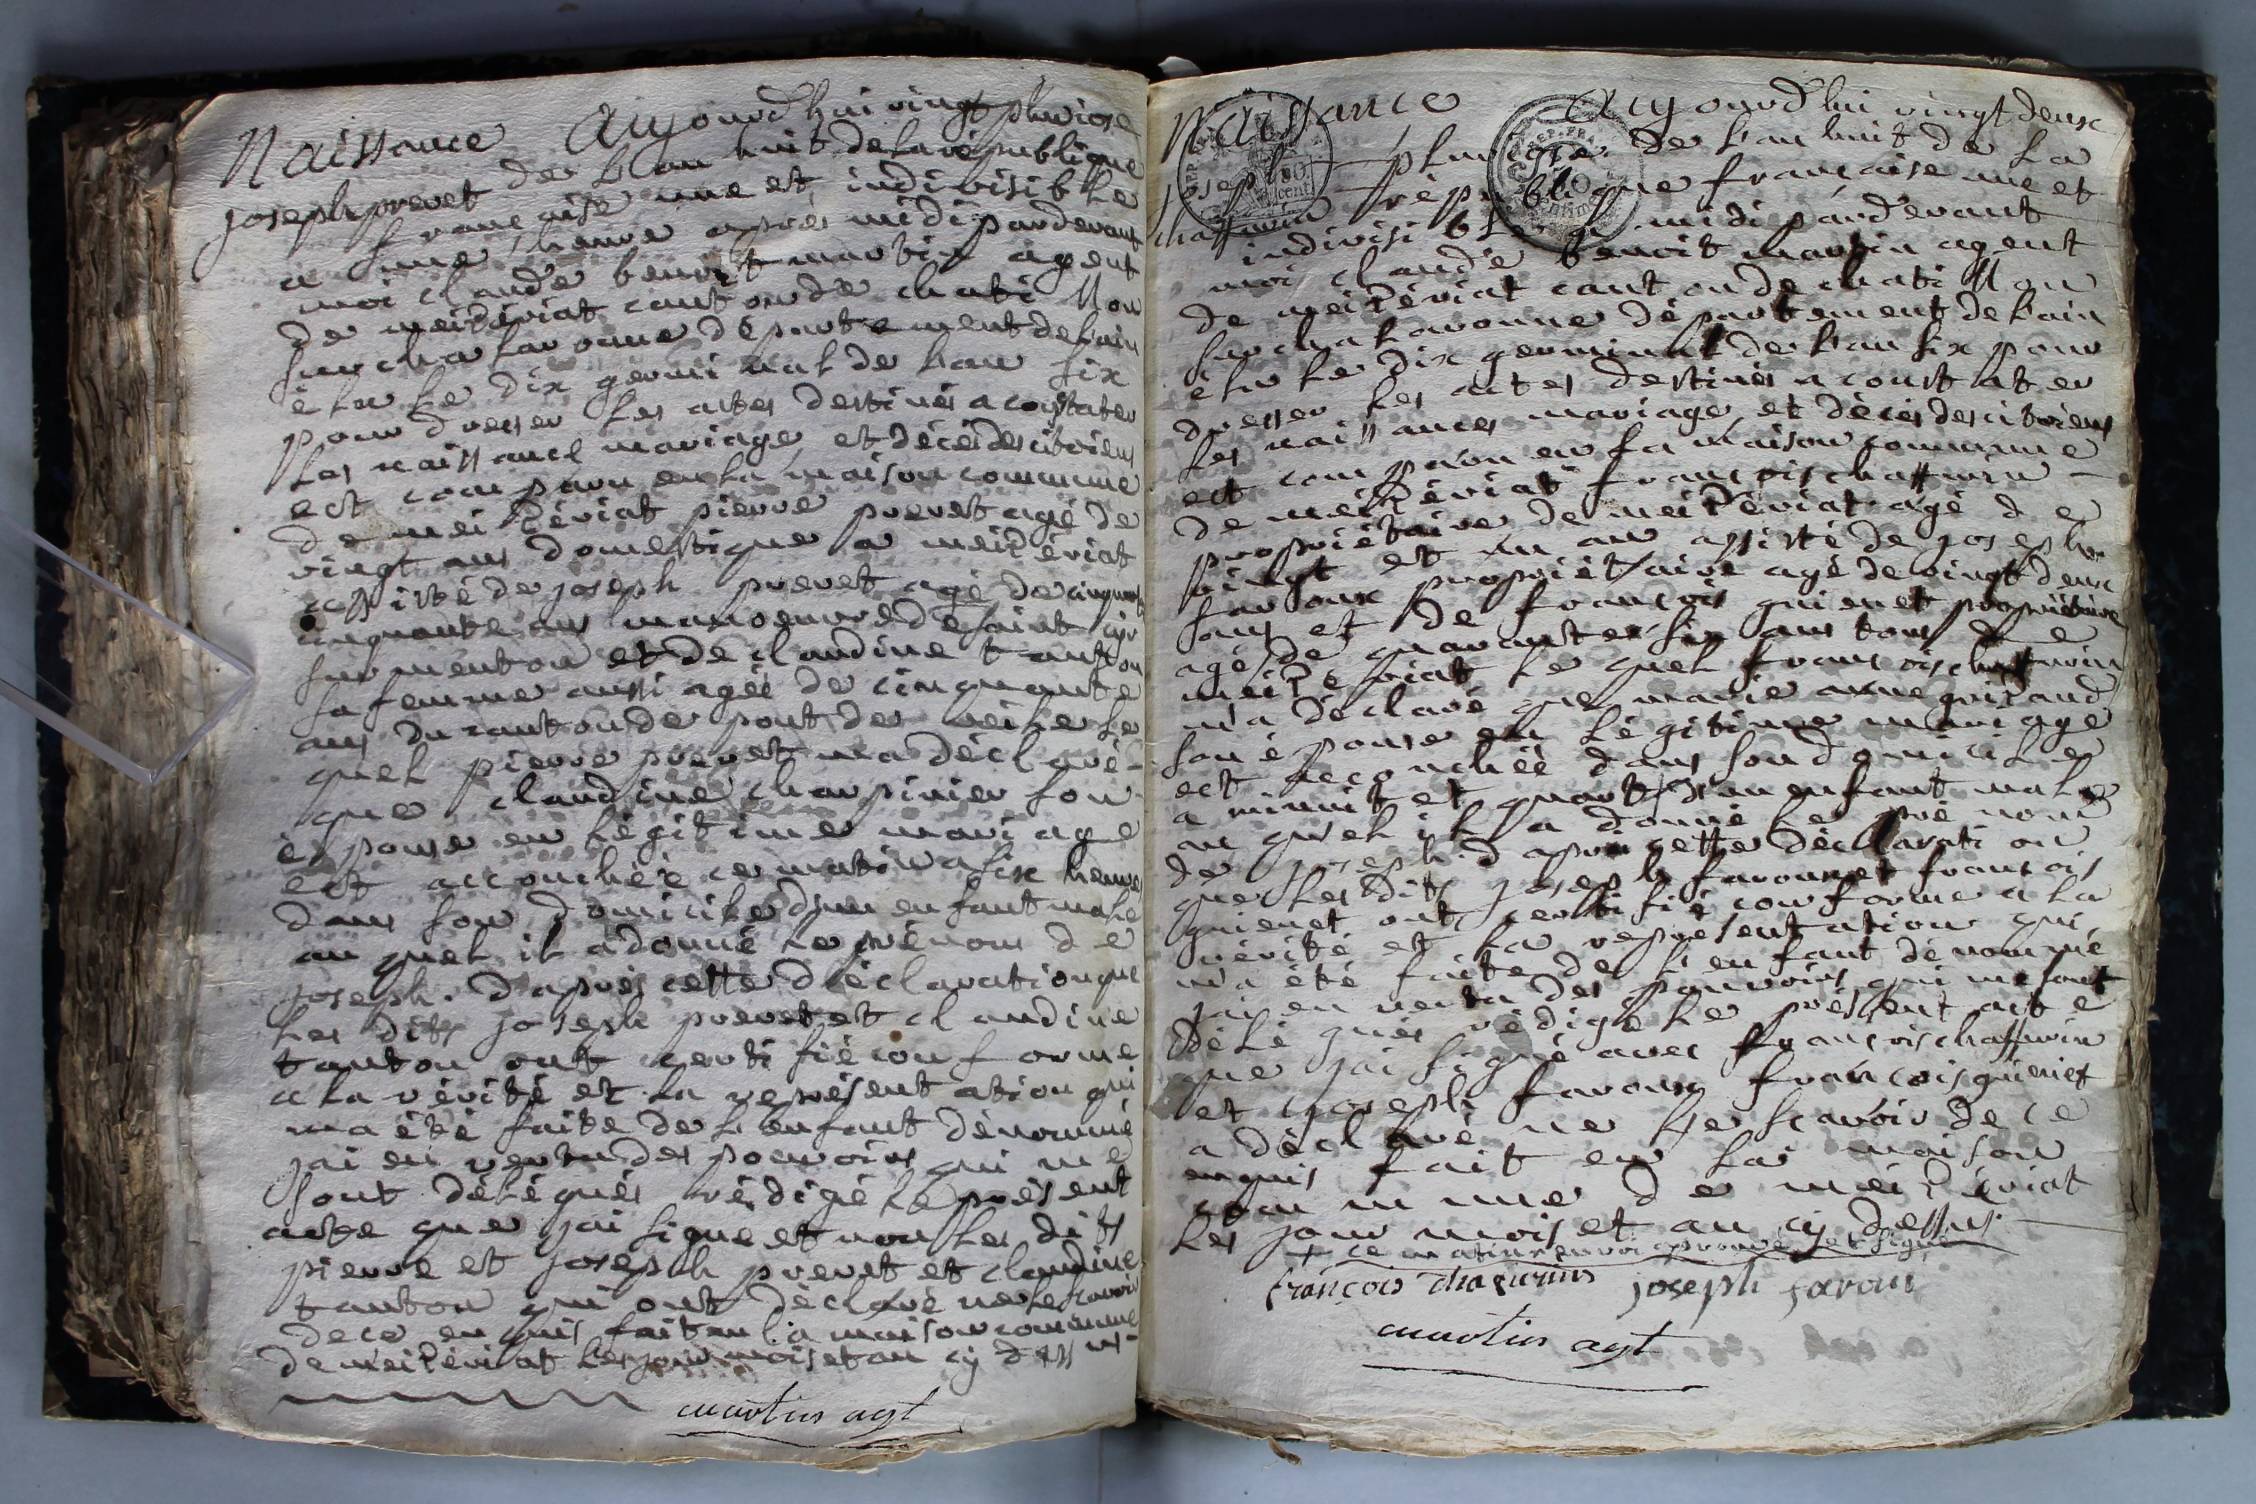 Naissance Aujourd'hui vingt pluviose
joseph prevet de l'an huit de la république
francaise une et indivisible
a une heure après midi pardevant
moi claude benoit martin agent
de meizériat canton de chatillon
sur chalaronne département de l'ain
élu le dix germinal de l'an six
pour dresser les actes destinés a constater
les naissances mariage et décès des citoiens
est comparu en la maison commune
de meizériat pierre prevet agé de
vingt ans domestique a meizériat
assisté de joseph prevet agé de cinquante
cinquante ans manoeuvre de saint cir
sur menton et de claudine tanton
sa femme aussi agée de cinquante
ans du canton de pont de veihe le
quel pierre prevet m'a déclaré
que claudine charpinier son
épouse en légitime mariage
est accouchée ce matin a six heures
dans son domicile d'un enfant male
au quel il a donné le prénom de
joseph. d'après cette déclaration que
les dits joseph prevet et claudine
tanton ont certifié conforme
a la vérité et la représentation qui
m'a été faite de l'enfant dénommé
jai en vertu des pouvoirs qui me
sont délégués rédigé le présent
acte que jai signé et non les dits
pierre et joseph prevet et claudine
tanton qui ont déclaré ne le scavoir
de ce enquis fait en la maison commune
de meizériat les jour mois et an cy dessus
martin agt
Naissance Aujourd'hui vingt deux
joseph pluviose de l'an huit de la
chaffurin république française une et
indivisible a midi pardevant
moi claude benoit martin agent
de meizériat canton de chatillon
sur chalaronne département de l'ain
élu le dix germinal de l'an six pour
dresser les actes destinés a constater
les naissances mariage et décès des citoiens
est comparu en la maison commune
de meizériat francois chaffurin
propriétaire de meizériat agé de
vingt et un an assisté de joseph
faroux propriétaire agé de vingt deux
ans et de francois guienet propriétaire
agé de quarante six ans tous de
meizériat le quel francois chaffurin
m'a déclaré que marie anne guilland
son épouse en légitime mariage
est accouchée dans son domicile
a minuit et quart d'un enfant male
au quel il a donné le pré nom
de joseph. d'après cette déclaration
que les dits joseph faroux et francois
guienet ont certifié conforme a la
vérité et la représentation qui
m'a été faite de l'enfant dénommé
jai en vertu des pouvoirs qui me sont
délégués rédigé le présent acte
que jai signé avec francois chaffurin
et joseph faroux francois guienet
a déclaré ne le scavoir de ce
enquis fait en la maison
commune de meizériat
les jour mois et an cy dessus.
+ ce matin renvoi aprouvé et signé
françois chafurin joseph faroux
martin agt